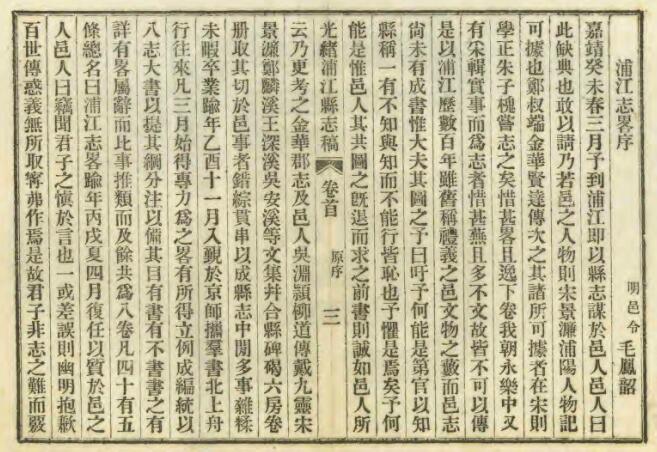 浦江志畧序
明邑令毛鳳韶
嘉靖癸未春三月予到浦江即以縣志謀於邑人邑人曰
此缺典也敢以請乃若邑之人物則宋景濂浦陽人物記
可據也鄭叔端金華賢達傳次之其諸所可據者在宋則
學正朱子槐嘗志之矣惜甚畧且逸下卷我朝永樂中又
有宋輯實事而為志者惜甚蕪且多不文故皆不可以傳
是以浦江歷數百年雖舊稱禮義之邑文物之藪而邑志
尚未有成書惟大夫其圖之予曰吁予何能是第官以知
縣稱一有不知與知而不能行皆恥也予懼是焉矣予何
能是惟邑人其共圖之旣退而求之前書則誠如邑人所
光緒浦江縣志稿
卷首
原序
三
云乃更考之金華郡志及邑人吳淵頴柳道傳戴九靈宋
景濂鄭麟溪王深溪吳安溪等文集幷合縣碑碣六房卷
册取其切於邑事者錯綜貫串以成縣志中間多事雜糅
未暇卒業踰年乙酉十一月入覲於京師攜羣書北上舟
行往來凡三月始得專力為之畧有所得立例成編統以
八志大書以提其綱分注以備其目有書有不書書之有
詳有畧屬辭而比事推類而及餘共為八卷凡四十有五
條總名曰浦江志畧踰年丙戌夏四月復任以質於邑之
人邑人曰竊聞君子之愼於言也一或差誤則幽明抱歉
百世傳惑義無所取寧弗作焉是故君子非志之難而覈